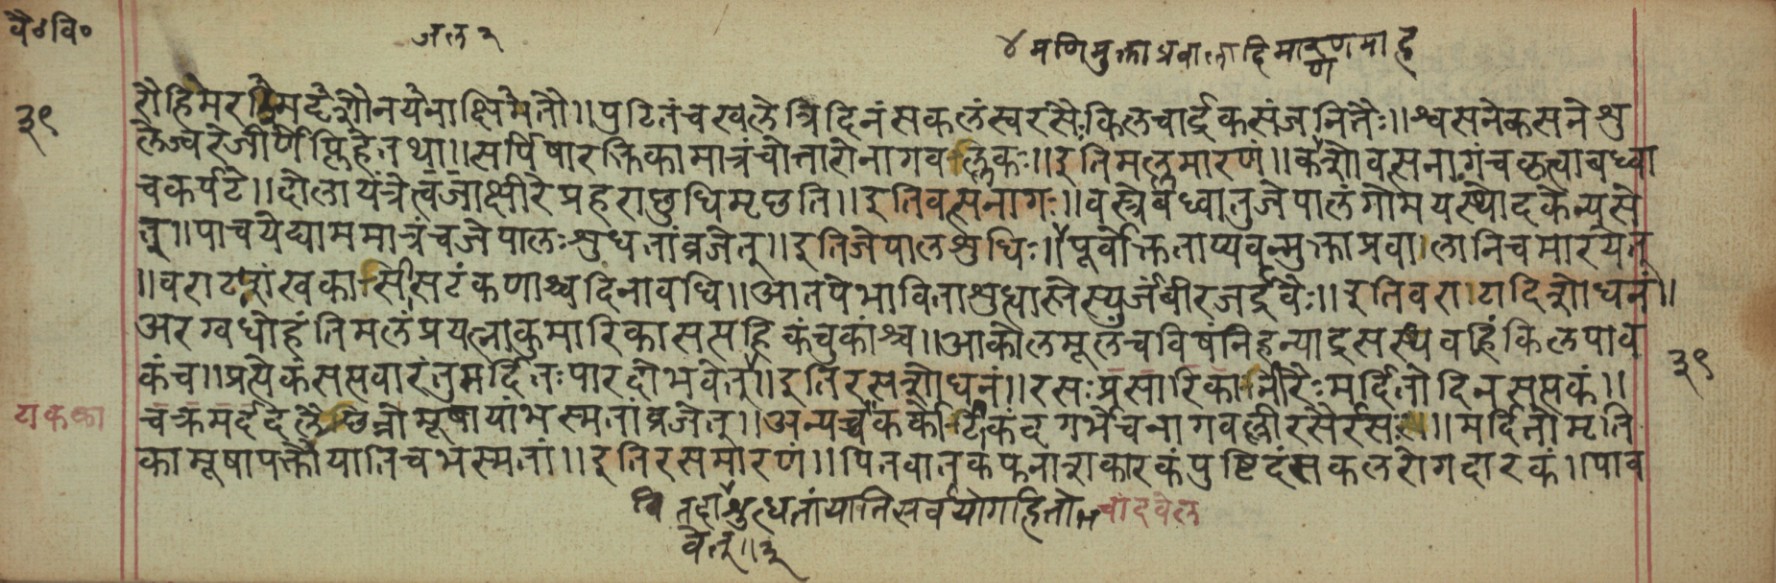 वै॰वि॰
जल २
४ मणिमुक्ताप्रवालादिमारणमाह
३९
रौहिमरश्मिमर्दनयेनाक्षिमितौ॥पुटितंचखलेत्रिदिनंसकलंस्वरसैःकिलचार्द्रकसंजनितैः॥श्वसनेकसनेशु
लेज्वरेजीर्णेप्लिहेतथा॥सर्पिषारक्तिकामात्रंचोत्तारोनागवल्लिकः॥इतिमल्लमारणं॥कर्शोवत्सनागंचकृत्वाबध्वा
चकर्पटे॥दोलायंत्रेत्वजाक्षीरेप्रहराछुधिमृछति॥इतिवत्सनागः॥वस्त्रेबध्वातुजेपालंगोमयस्योदकेन्यसे
त्॥पाचयेद्याममात्रंचजेपालःशुधतांव्रजेत्॥इतिजेपालशुधिः॥पूर्वोक्तताप्यवन्मुक्ताप्रवालानिचमारयेत्
॥वराटशंखकासीसटंकणाश्चदिनावधि॥आतपेभाविताशुध्यास्तेस्युर्जंबीरजर्द्रवैः॥इतिवराटादिशोधनं॥
अरग्वधोहंतिमलंप्रयत्नाकुमारिकाससहिकंचुकांश्च॥आकोलमूलंचविषंनिहन्याद्रसस्यवह्निंकिलपाव
कंच॥प्रत्येकंससवारंतुमर्दितःपारदोभवेत्॥इतिरसशोधनं॥रसःप्रसारिकानीरैःमर्दितोदिनसप्तकं॥
३९
चक्रमर्ददलैछन्नोमूषायांभस्मतांव्रजेत्॥अन्यच्चकर्कोटिकंदगर्भेचनागवल्लीरसैर्रसः॥मर्दितोमृति
कामूषापक्तोयातिचभस्मतां॥इतिरसमारणं॥पितवातकफनाशकारकंपुष्टिदंसकलरोगदारकं॥पाव
शुध्धतांयातिसर्वयोगहितो
वेत्॥३